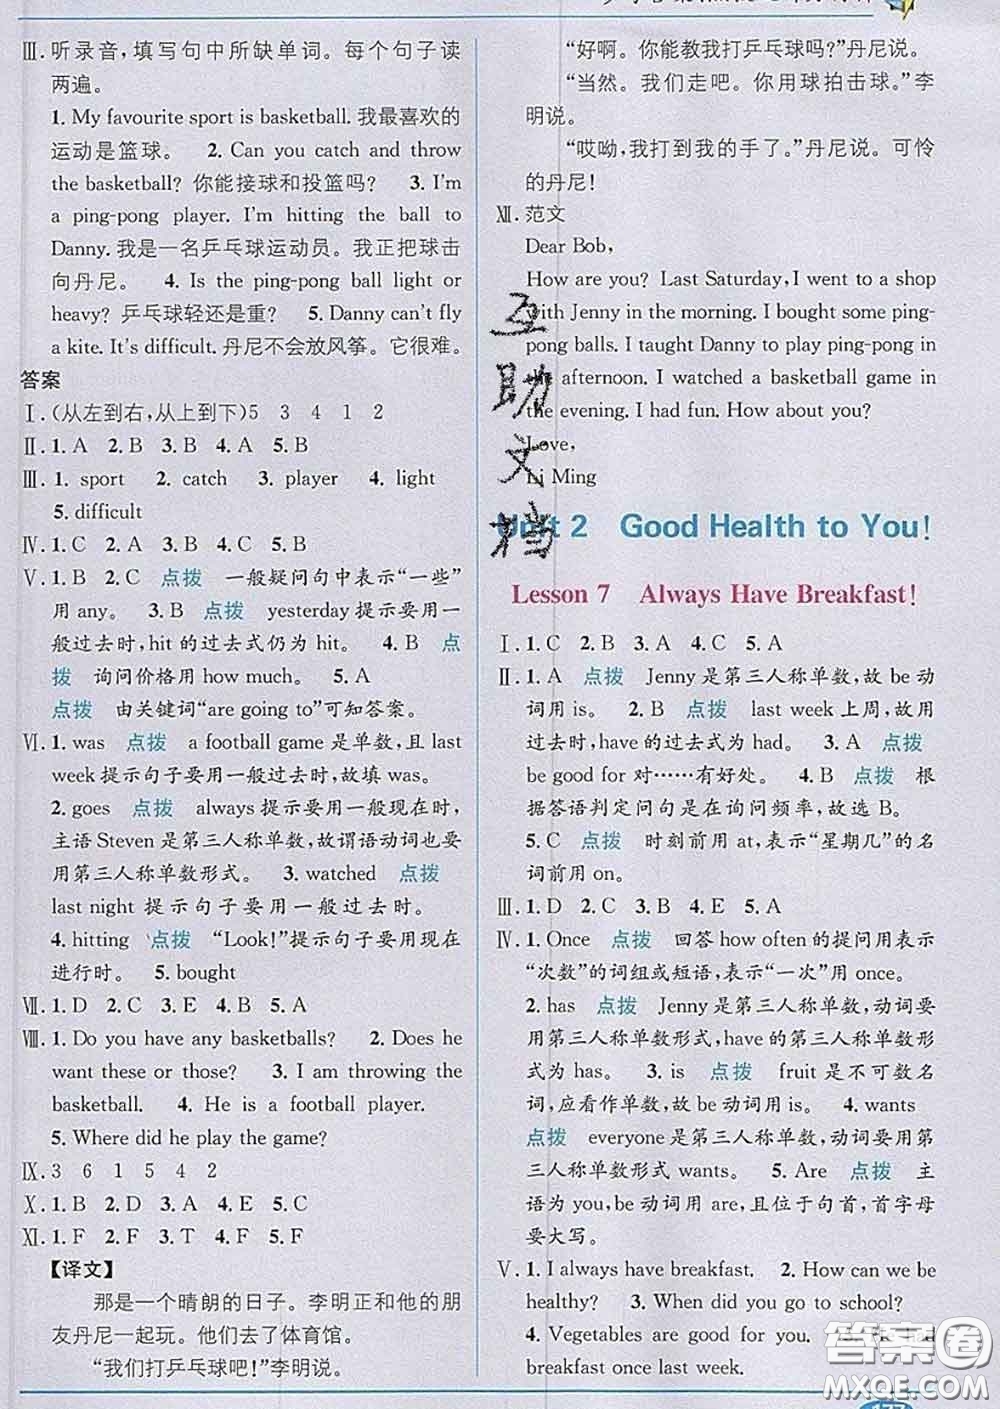 Ⅲ. 听录音，填写句中所缺单词。每个句子读
两遍。
1. My favourite sport is basketball. 我最喜欢的
运动是篮球。 2. Can you catch and throw
the basketball? 你能接球和投篮吗? 3. I'm
a ping-pong player. I'm hitting the ball to
Danny. 我是一名乒乓球运动员。我正把球击
向丹尼。 4. Is the ping-pong ball light or
heavy? 乒乓球轻还是重? 5. Danny can't fly
a kite. It's difficult. 丹尼不会放风筝。它很难。
答案
Ⅰ. (从左到右，从上到下)5 3 4 1 2
Ⅱ. 1. A 2. B 3. B 4. A 5. B
Ⅲ. 1. sport 2. catch 3. player 4. light
5. difficult
Ⅳ. 1. C 2. A 3. B 4. C 5. B
Ⅴ. 1. C 2. A 点拨 一般疑问句中表示“一些”
用 any。 3. B 点拨 yesterday 提示要用一
般过去时，hit 的过去式仍为 hit。 4. B 点
拨 询问价格用 how much。 5. A
点拨 由关键词“are going to”可知答案。
Ⅵ. 1. was 点拨 a football game 是单数，且 last
week 提示句子要用一般过去时，故填 was。
2. goes 点拨 always 提示要用一般现在时，
主语 Steven 是第三人称单数，故谓语动词也要
用第三人称单数形式。 3. watched 点拨
last night 提示句子要用一般过去时。
4. hitting 点拨 “Look!”提示句子要用现在
进行时。 5. bought
Ⅶ. 1. D 2. C 3. E 4. B 5. A
Ⅷ. 1. Do you have any basketballs? 2. Does he
want these or those? 3. I am throwing the
basketball. 4. He is a football player.
5. Where did he play the game?
Ⅸ. 3 6 1 5 4 2
Ⅹ. 1. B 2. D 3. A 4. B 5. C
Ⅺ. 1. F 2. F 3. T 4. F 5. F
【译文】
那是一个晴朗的日子。李明正和他的朋
友丹尼一起玩。他们去了体育馆。
“我们打乒乓球吧!”李明说。
“好啊。你能教我打乒乓球吗?”丹尼说。
“当然。我们走吧。你用球拍击球。”李
明说。
“哎呦，我打到我的手了。”丹尼说。可怜
的丹尼!
Ⅻ. 范文
Dear Bob,
How are you? Last Saturday, I went to a shop
with Jenny in the morning. I bought some ping-
pong balls. I taught Danny to play ping-pong in
the afternoon. I watched a basketball game in
the evening. I had fun. How about you?
Love,
Li Ming
Unit 2 Good Health to You!
Lesson 7 Always Have Breakfast!
Ⅰ. 1. C 2. B 3. A 4. C 5. A
Ⅱ. 1. A 点拨 Jenny 是第三人称单数，故 be 动
词用 is。 2. B 点拨 last week 上周，故用
过去时，have 的过去式为 had。 3. A 点拨
be good for 对……有好处。 4. B 点拨 根
据答语判定问句是在询问频率，故选 B。
5. C 点拨 时刻前用 at，表示“星期几”的名
词前用 on。
Ⅲ. 1. D 2. C 3. B 4. E 5. A
Ⅳ. 1. Once 点拨 回答 how often 的提问用表示
“次数”的词组或短语，表示“一次”用 once。
2. has 点拨 Jenny 是第三人称单数，动词要
用第三人称单数形式，have 的第三人称单数形
式为 has。 3. is 点拨 fruit 是不可数名
词，应看作单数，故 be 动词用 is。 4. wants
点拨 everyone 是第三人称单数，故动词用第
三人称单数形式 wants。 5. Are 点拨 主
语为 you，be 动词用 are，且位于句首，首字母
要大写。
Ⅴ. 1. I always have breakfast. 2. How can we be
healthy? 3. When did you go to school?
4. Vegetables are good for you.
breakfast once last week.
互助文档
答案圈
MXQE.COM